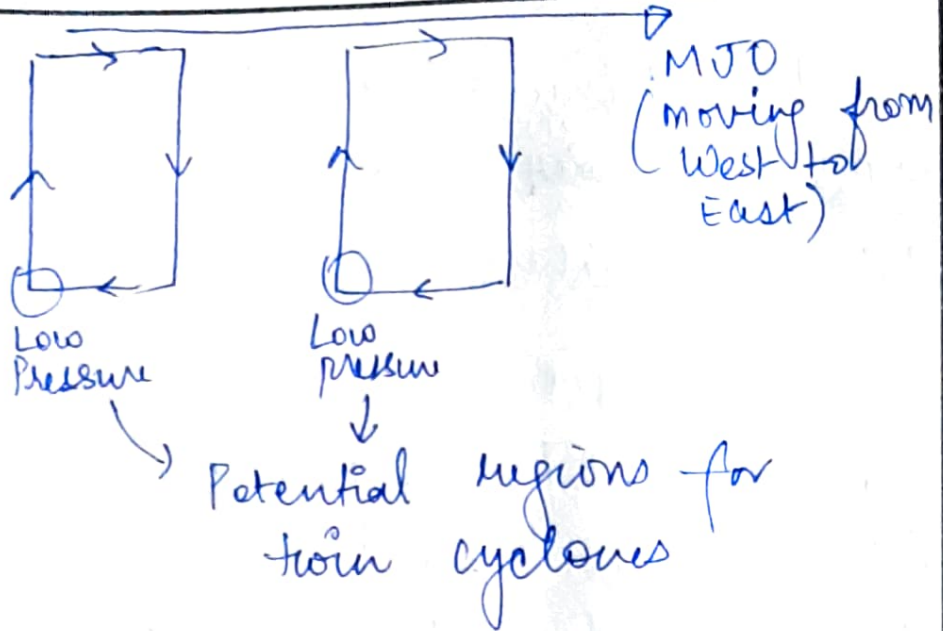 MJO
(moving from
West to
East)
Low
Pressure
Low
pressure
Potential regions for
twin cyclones